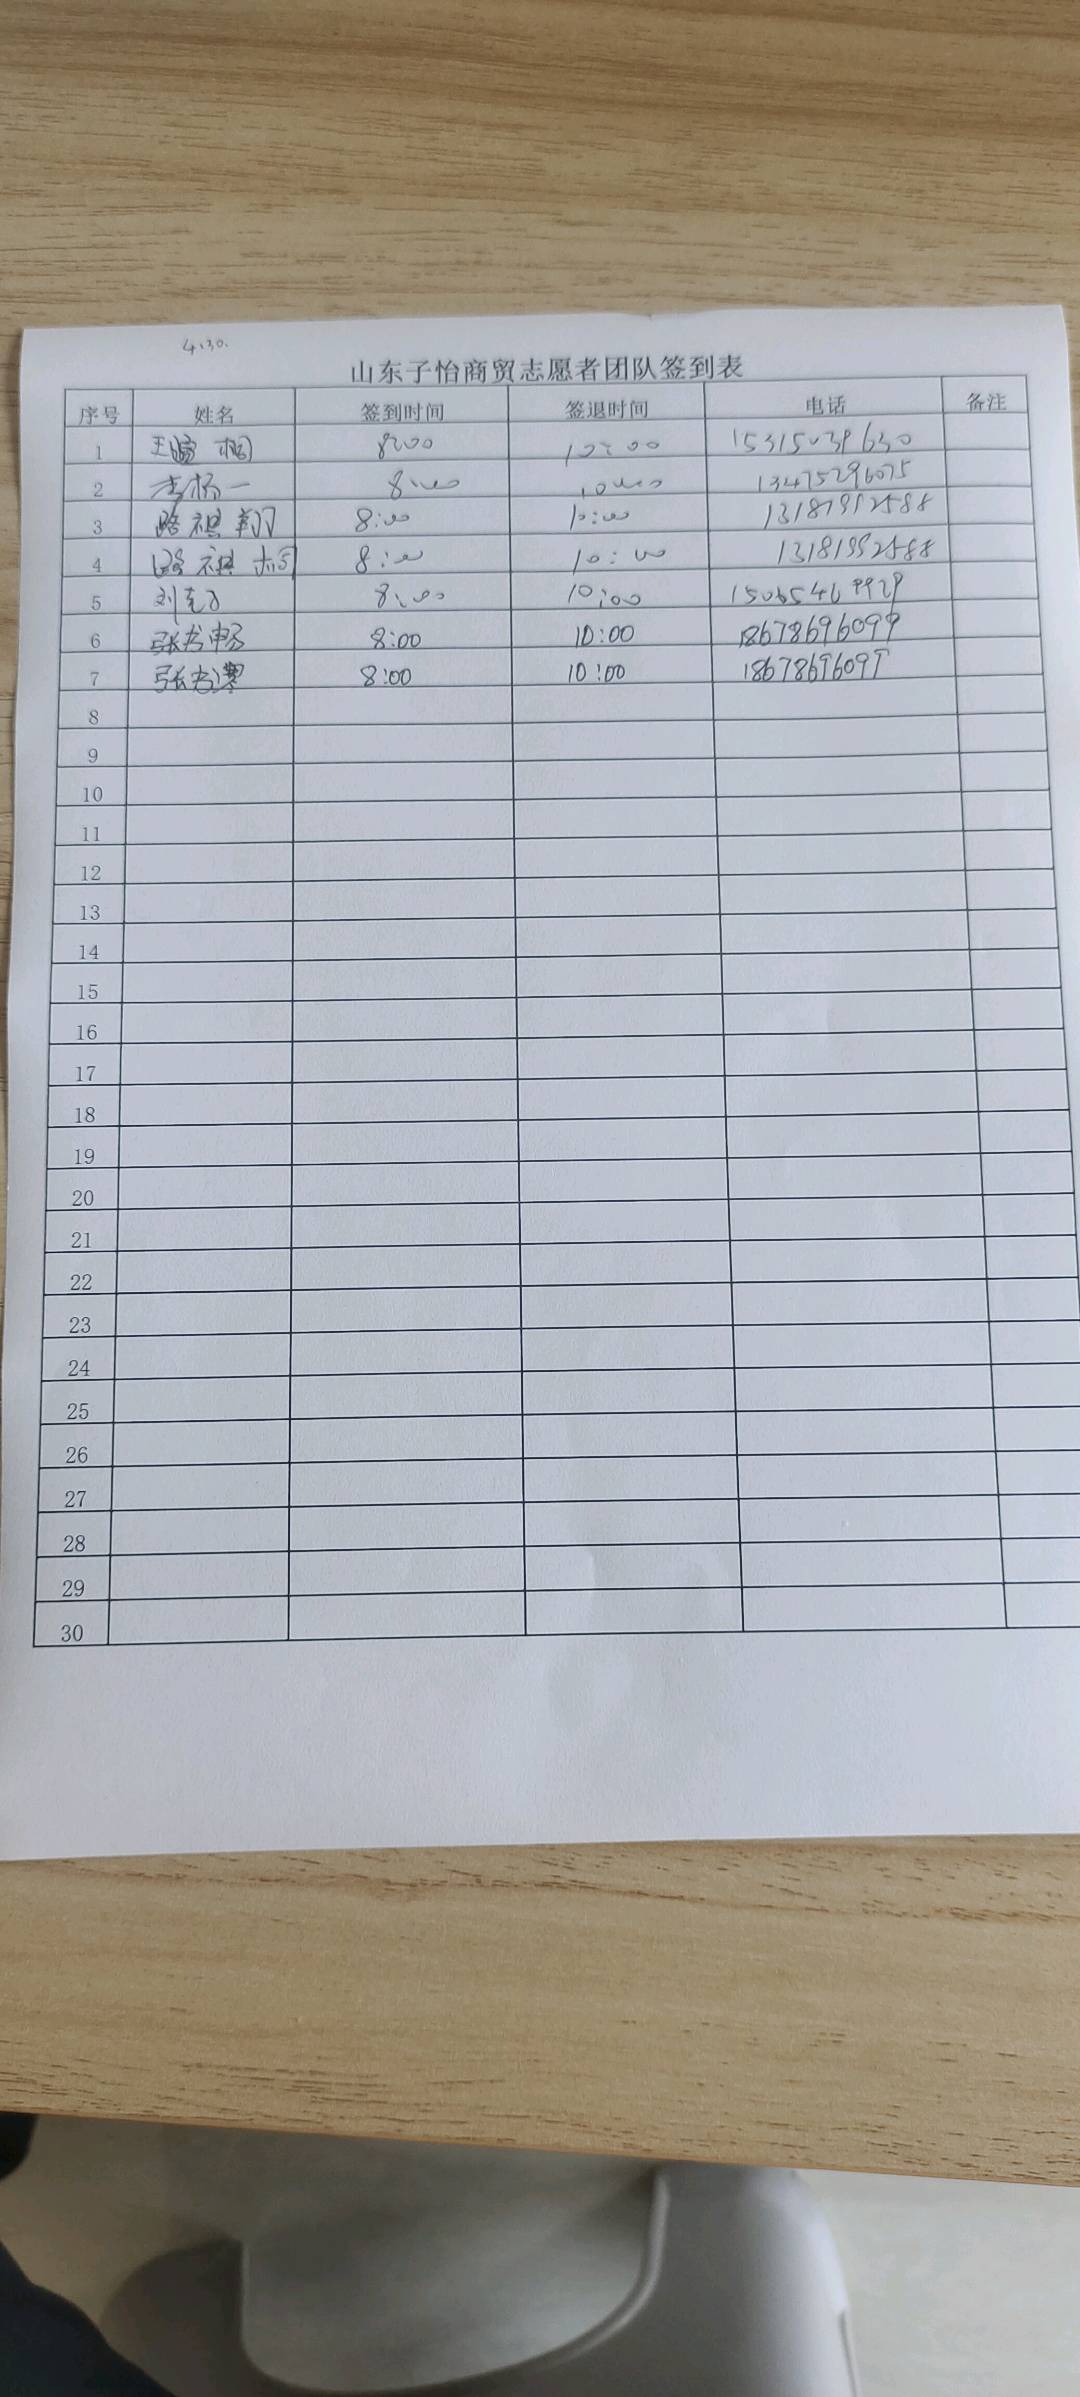 4.30.
山东子怡商贸志愿者团队签到表
序号 姓名 签到时间 签退时间 电话 备注
1 王 桐 8:00 10:00 15315039630
2 李杨一 8:00 10:00 13475296075
3 路祺翔 8:00 10:00 13181992588
4 路祺桐 8:00 10:00 13181992588
5 刘 8:00 10:00 15065469929
6 张书畅 8:00 10:00 18678696099
7 张书 8:00 10:00 18678696099
8
9
10
11
12
13
14
15
16
17
18
19
20
21
22
23
24
25
26
27
28
29
30